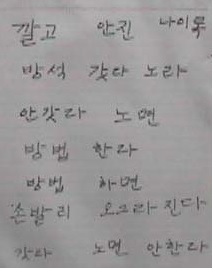 깔고 안진 나이롱
방석 갖다 노라
안갖라 노면
방법 한다
방법 하면
손발리 오그라진다
갖다 노면 안한다